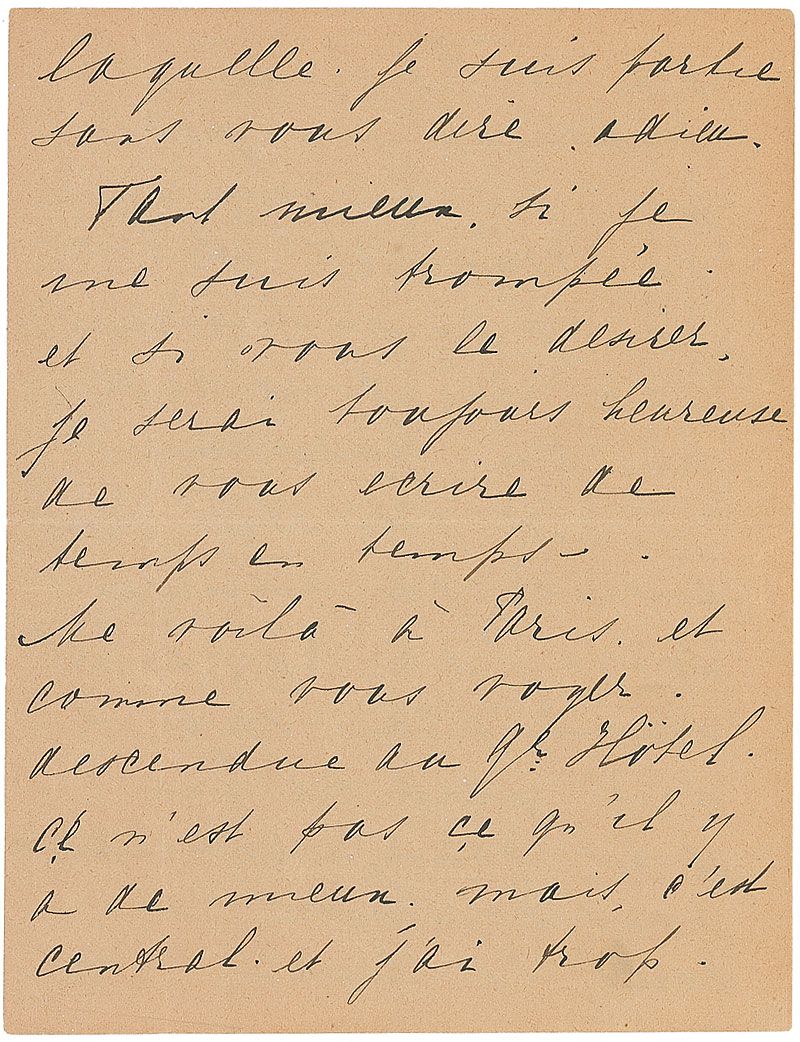 laquelle. je suis partie
sans vous dire adieu.
Tant mieux, si je
me suis trompée.
et si vous le desirez,
je serai toujours heureuse
de vous ecrire de
temps en temps - .
Me voilà à Paris. et
comme vous voyez.
descendue au Gr. Hôtel.
ce n'est pas ce qu'il y
a de mieux. mais, c'est
central. et j'ai trop.